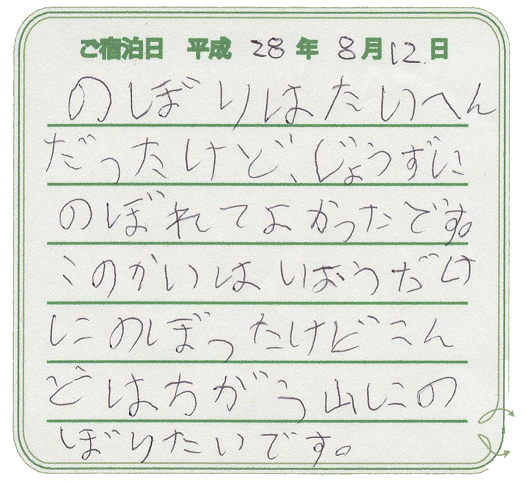 ご宿泊日 平成 28 年 8月12日
のぼりはたいへん
だったけど、じょうずに
のぼれてよかったです。
このかいはいおうだけ
にのぼったけどこん
どはちがう山にの
ぼりたいです。